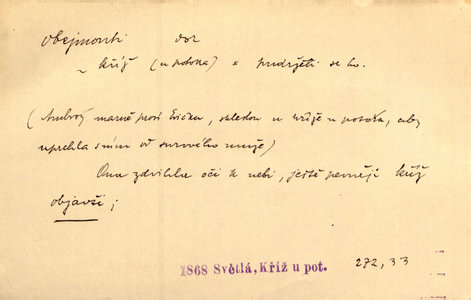 obejmouti vor
~ kříž (u potoka) = přidržeti se ho.
(Ambrož marně prosí Evičku, shledanou u kříže u potoka, aby
uprchla s ním od surového muže)
Ona zdvihla oči k nebi, ještě pevněji kříž
objavši;
1868 Světlá, Kříž u pot. 272,33